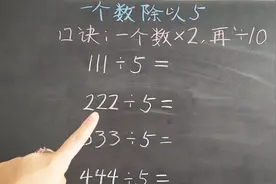 一个数除以5
口诀:一个数×2,再÷10
111÷5=
222÷5=
333÷5=
444÷5=